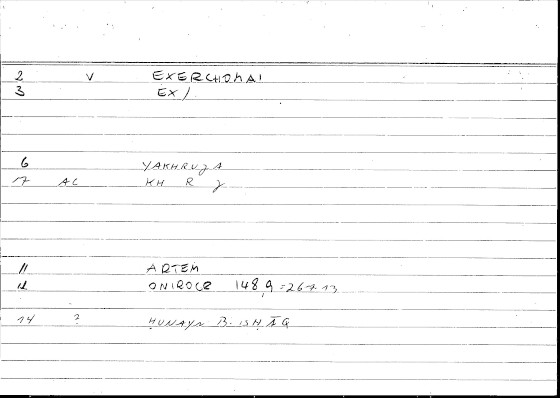 2 V EXERCHOMAI
3 EX /
6 YAKHRUJA
17 AC KH R J
11 ARTEM
12 ONIROCR 148,9 = 267.13
14 ? ḤUNAYN B. ISḤĀQ